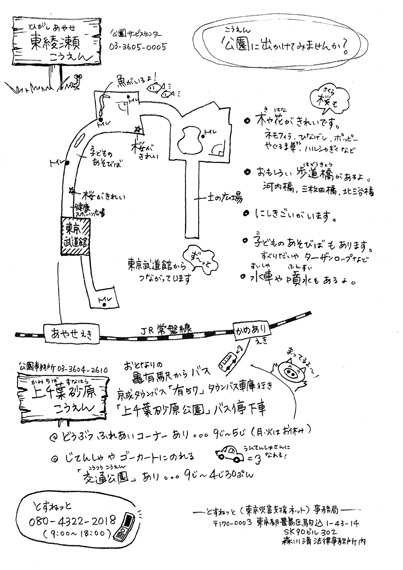 とうがし あやせ
東綾瀬
こうえん
公園サービスセンター
03-3605-0005
こうえん
公園に出かけてみませんか？
魚がいるよ！
トイレ
トイレ
トイレ
トイレ
子どもの
あそびば
桜が
きれい
桜がきれい
健康
スポーツ広場
東京
武道館
土の広場
東京武道館から
つながっています
ずーっと
さくら
桜も
木や花がきれいです。
ネモフィラ、ひなげし、ポピー
やぐるま草、ハルシャぎくなど
おもしろい歩道橋があるよ。
ほどうきょう
河内橋、三枚田橋、北三谷橋
にしきごいがいます。
子どものあそびばもあります。
すべりだいやターザンロープなど
すいしゃ ふんすい
水車や噴水もあるよ。
あやせえき
JR常磐線
かめあり
えき
公園事務所 03-3604-2610
かみちば すなはら
上千葉砂原
こうえん
おとなりの
亀有駅からバス
京成タウンバス「有57」タウンバス車庫行き
「上千葉砂原公園」バス停下車
まってるよ〜！
@ どうぶつふれあいコーナーあり…9じ〜5じ（月・火はお休み）
@ じてんしゃやゴーカートにのれる
うんてんしゅさんに
なれる！
こうつうこうえん
「交通公園」あり…9じ〜4じ30ぷん
とすねっと
080-4322-2018
(9:00〜18:00)
とすねっと（東京災害支援ネット）事務局
〒170-0003 東京都豊島区駒込1-43-14
SK90ビル302
森川清法律事務所内